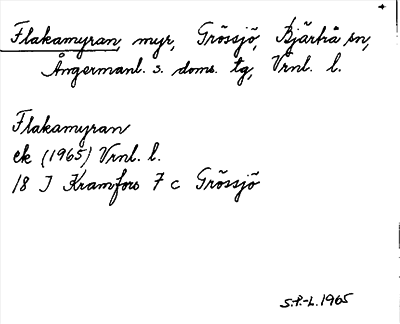 Flakamyran, myr, Grössjö, Bjärtrå sn,
Ångermanl. s. doms. tg, Vrnl. l.
Flakamyran
ek (1965) Vrnl. l.
18 J Kramfors 7 c Grössjö
S.P.-L. 1965